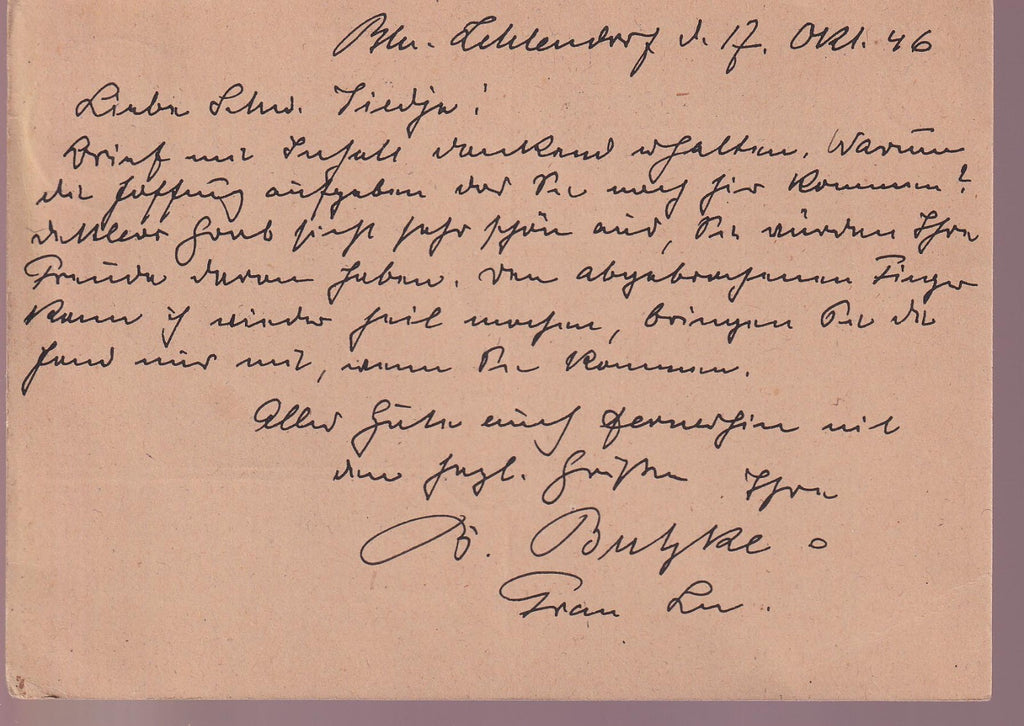 Bln. Zehlendorf d. 17. Okt. 46
Liebe Schw. Tiedja!
Brief mit Inhalt dankend erhalten. Warum
die Hoffnung aufgeben das Sie nach hir kommen?
Detlevs Grab sieht sehr schön aus, Sie würden Ihre
Freude daran haben. Den abgebrochenen Finger
kann ich wieder heil machen, bringen Sie die
Hand nur mit, wenn Sie kommen.
Alles Gute auch fernerhin mit
den hezl. Grüßen Ihre
B. Butzke
Frau